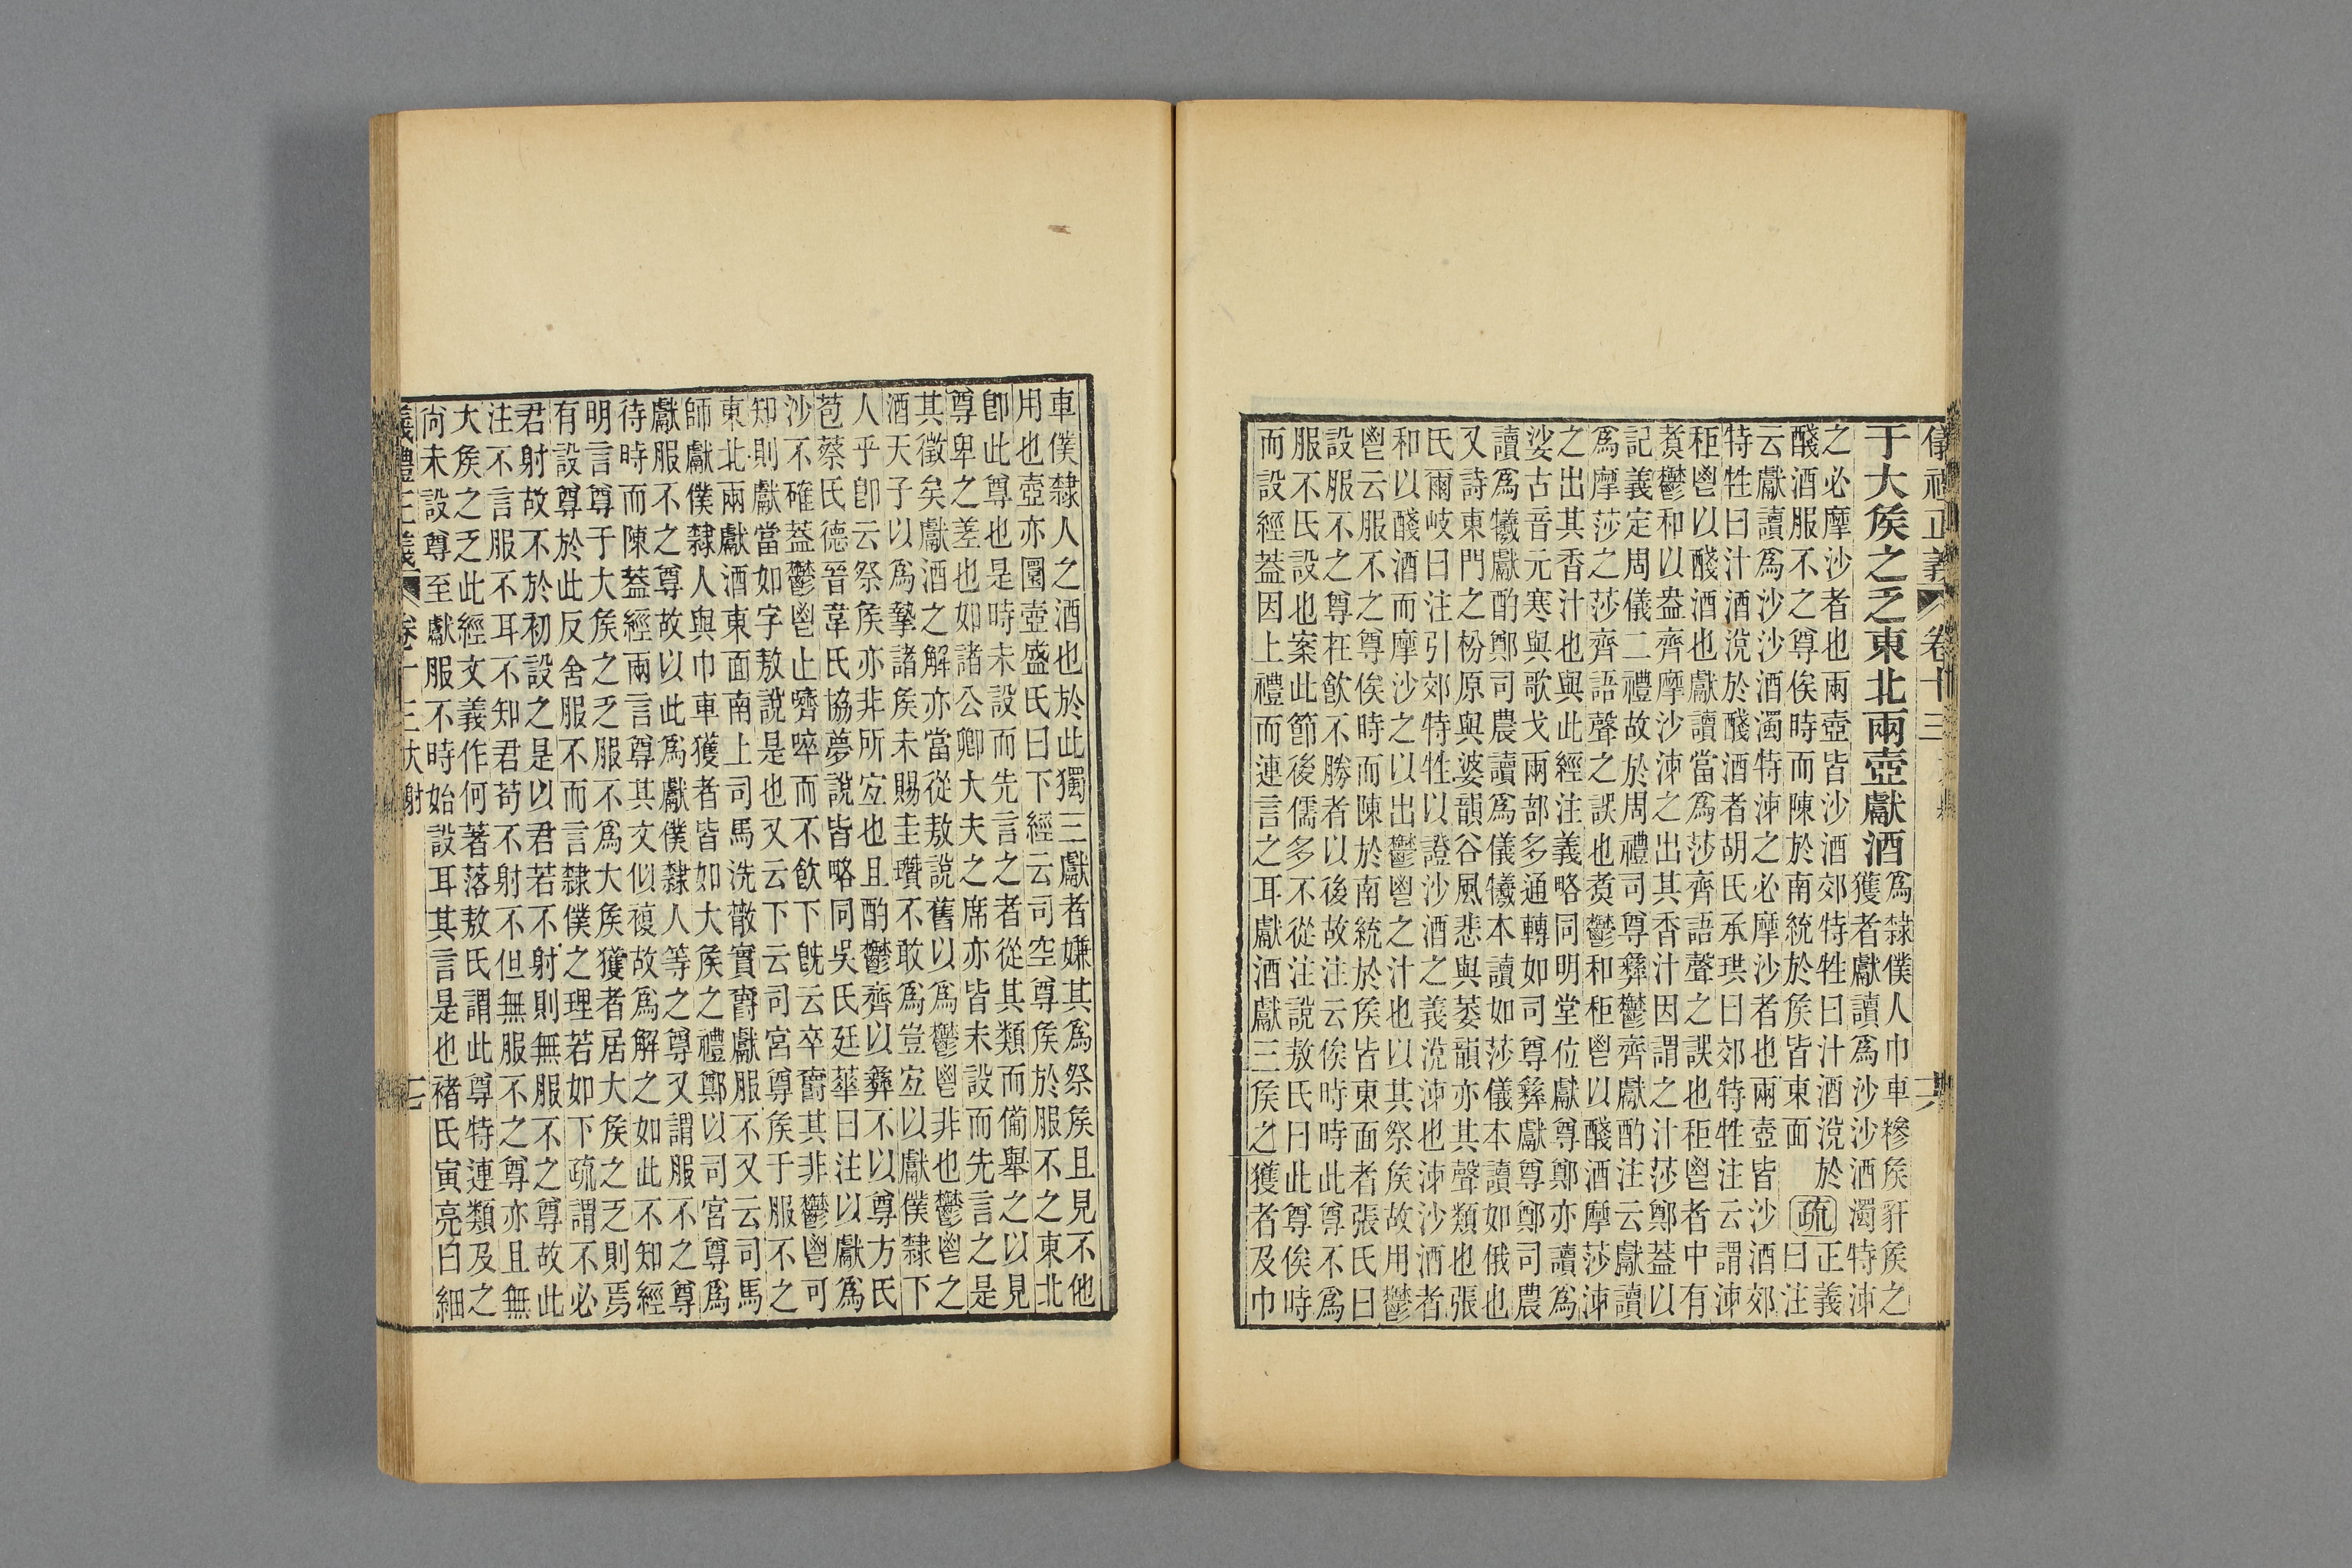 儀禮正義 卷十三
于大矦之乏東北兩壺獻酒
爲隸僕人巾車糝矦豻矦之
獲者獻讀爲沙沙酒濁特泲
之必摩沙者也兩壺皆沙酒郊特牲曰汁酒涚於
醆酒服不之尊俟時而陳於南統於矦皆東面
疏
正義
曰注
云獻讀爲沙沙酒濁特泲之必摩沙者也兩壺皆沙酒郊
特牲曰汁酒涚於醆酒者胡氏承珙曰郊特牲注云謂泲
秬鬯以醆酒也獻讀當爲莎齊語聲之誤也秬鬯者中有
煑鬱和以盎齊摩沙泲之出其香汁因謂之汁莎鄭蓋以
記義定周儀二禮故於周禮司尊彝鬱齊獻酌注云獻讀
爲摩莎之莎齊語聲之誤也煑鬱和秬鬯以醆酒摩莎泲
之出其香汁也與此經注義略同明堂位獻尊鄭亦讀爲
娑古音元寒與歌戈兩部多通轉如司尊彝獻尊鄭司農
讀爲犧獻酌鄭司農讀爲儀犧本讀如莎儀本讀如俄也
又詩東門之枌原與婆韻谷風悲與萎韻亦其聲類也張
氏爾岐曰注引郊特牲以證沙酒之義涚泲也泲沙酒者
和以醆酒而摩沙之以出鬱鬯之汁也以其祭矦故用鬱
鬯云服不之尊俟時而陳於南統於矦皆東面者張氏曰
設服不之尊在飮不勝者以後故注云俟時時此尊不爲
服不氏設也案此節後儒多不從注說敖氏曰此尊俟時
而設經蓋因上禮而連言之耳獻酒獻三矦之獲者及巾
車僕隸人之酒也於此獨三獻者嫌其爲祭矦且見不他
用也壺亦圜壺盛氏曰下經云司空尊矦於服不之東北
卽此尊也是時未設而先言之者從其類而備舉之以見
尊卑之差也如諸公卿大夫之席亦皆未設而先言之是
其徵矣獻酒之解亦當從敖說舊以爲鬱鬯非也鬱鬯之
酒天子以爲摯諸矦未賜圭瓚不敢爲豈宐以獻僕隸下
人乎卽云祭矦亦非所宐也且酌鬱齊以彝不以尊方氏
苞蔡氏德晉韋氏協夢說皆略同吳氏廷華曰注以獻爲
沙不確蓋鬱鬯止嚌啐而不飮下旣云卒爵其非鬱鬯可
知則獻當如字敖說是也又云下云司宮尊矦于服不之
東北兩獻酒東面南上司馬洗散實爵獻服不又云司馬
師獻僕隸人與巾車獲者皆如大矦之禮鄭以司宮尊爲
獻服不之尊故以此爲獻僕隸人等之尊又謂服不之尊
待時而陳蓋經兩言尊其文似複故爲解之如此不知經
明言尊于大矦之乏服不爲大矦獲者居大矦之乏則焉
有設尊於此反舍服不而言隸僕之理若如下疏謂不必
君射故不於初設之是以君若不射則無服不之尊故此
注不言服不耳不知君苟不射不但無服不之尊亦且無
大矦之乏此經文義作何著落敖氏謂此尊特連類及之
尙未設尊至獻服不時始設耳其言是也褚氏寅亮曰細
儀禮正義 卷十三 大射